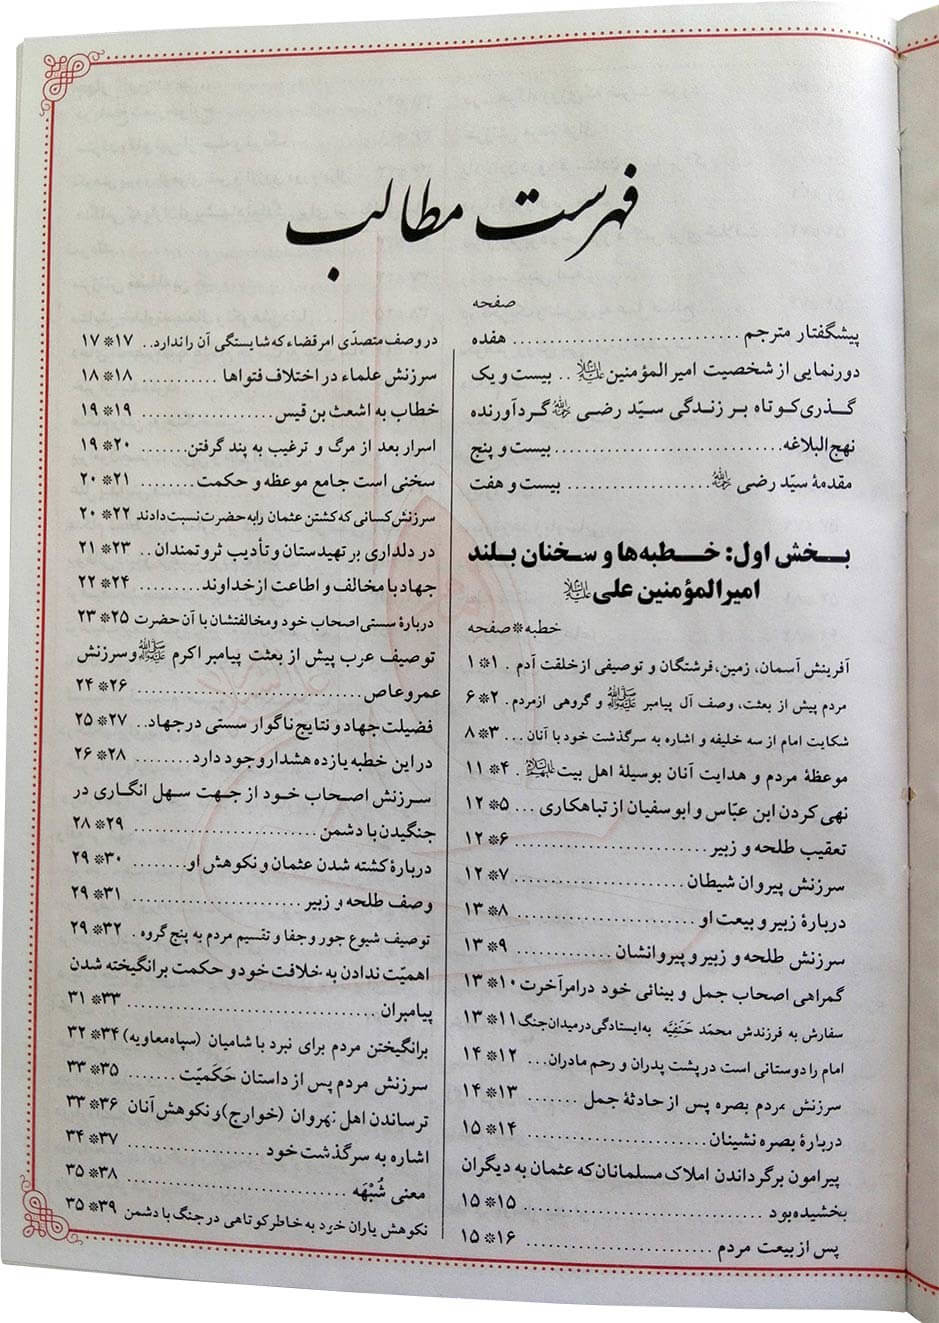 فهرست مطالب
صفحه
پیشگفتار مترجم ........................ هفده
دورنمایی از شخصیت امیرالمؤمنین علیه‌السلام .. بیست و یک
گذری کوتاه بر زندگی سیّد رضی رحمه‌الله گردآورنده
نهج‌البلاغه ........................ بیست و پنج
مقدمهٔ سیّد رضی رحمه‌الله ................ بیست و هفت
بخش اول: خطبه‌ها و سخنان بلند
امیرالمؤمنین علی علیه‌السلام
خطبه*صفحه
آفرینش آسمان، زمین، فرشتگان و توصیفی از خلقت آدم . ۱*۱
مردم پیش از بعثت، وصف آل پیامبر ﷺ و گروهی از مردم . ۲*۶
شکایت امام از سه خلیفه و اشاره به سرگذشت خود با آنان ... ۳*۸
موعظهٔ مردم و هدایت آنان بوسیلهٔ اهل بیت علیهم‌السلام . ۴*۱۱
نهی کردن ابن عبّاس و ابوسفیان از تباهکاری ... ۵*۱۲
تعقیب طلحه و زبیر ........................ ۶*۱۲
سرزنش پیروان شیطان ........................ ۷*۱۲
دربارهٔ زبیر و بیعت او ........................ ۸*۱۳
سرزنش طلحه و زبیر و پیروانشان ............ ۹*۱۳
گمراهی اصحاب جمل و بینائی خود در امر آخرت ۱۰*۱۳
سفارش به فرزندش محمّد حَنَفیَّه به ایستادگی در میدان جنگ ۱۱*۱۳
امام را دوستانی است در پشت پدران و رحم مادران ... ۱۲*۱۴
سرزنش مردم بصره پس از حادثهٔ جمل ....... ۱۳*۱۴
دربارهٔ بصره نشینان ........................ ۱۴*۱۵
پیرامون برگرداندن املاک مسلمانان که عثمان به دیگران
بخشیده بود ........................ ۱۵*۱۵
پس از بیعت مردم ........................ ۱۶*۱۵
در وصف متصدّی امر قضاء که شایستگی آن را ندارد .. ۱۷*۱۷
سرزنش علماء در اختلاف فتواها .......... ۱۸*۱۸
خطاب به اشعث بن قیس .................. ۱۹*۱۹
اسرار بعد از مرگ و ترغیب به پند گرفتن ....... ۲۰*۱۹
سخنی است جامع موعظه و حکمت ........ ۲۱*۲۰
سرزنش کسانی که کشتن عثمان را به حضرت نسبت دادند ۲۲*۲۰
در دلداری بر تهیدستان و تأدیب ثروتمندان .. ۲۳*۲۱
جهاد با مخالف و اطاعت از خداوند ......... ۲۴*۲۲
دربارهٔ سستی اصحاب خود و مخالفتشان با آن حضرت ۲۵*۲۳
توصیف عرب پیش از بعثت پیامبر اکرم ﷺ و سرزنش
عمروعاص ........................ ۲۶*۲۴
فضیلت جهاد و نتایج ناگوار سستی در جهاد .. ۲۷*۲۵
در این خطبه یازده هشدار وجود دارد ........ ۲۸*۲۶
سرزنش اصحاب خود از جهت سهل انگاری در
جنگیدن با دشمن ........................ ۲۹*۲۸
دربارهٔ کشته شدن عثمان و نکوهش او ........ ۳۰*۲۹
وصف طلحه و زبیر ........................ ۳۱*۲۹
توصیف شیوع جور و جفا و تقسیم مردم به پنج گروه . ۳۲*۲۹
اهمیّت ندادن به خلافت خود و حکمت برانگیخته شدن
پیامبران ........................ ۳۳*۳۱
برانگیختن مردم برای نبرد با شامیان (سپاه معاویه) ۳۴*۳۲
سرزنش مردم پس از داستان حَکَمیّت ....... ۳۵*۳۳
ترساندن اهل نهروان (خوارج) و نکوهش آنان ۳۶*۳۳
اشاره به سرگذشت خود .................. ۳۷*۳۴
معنی شُبْهَه ........................ ۳۸*۳۵
نکوهش یاران خود به خاطر کوتاهی در جنگ با دشمن ۳۹*۳۵